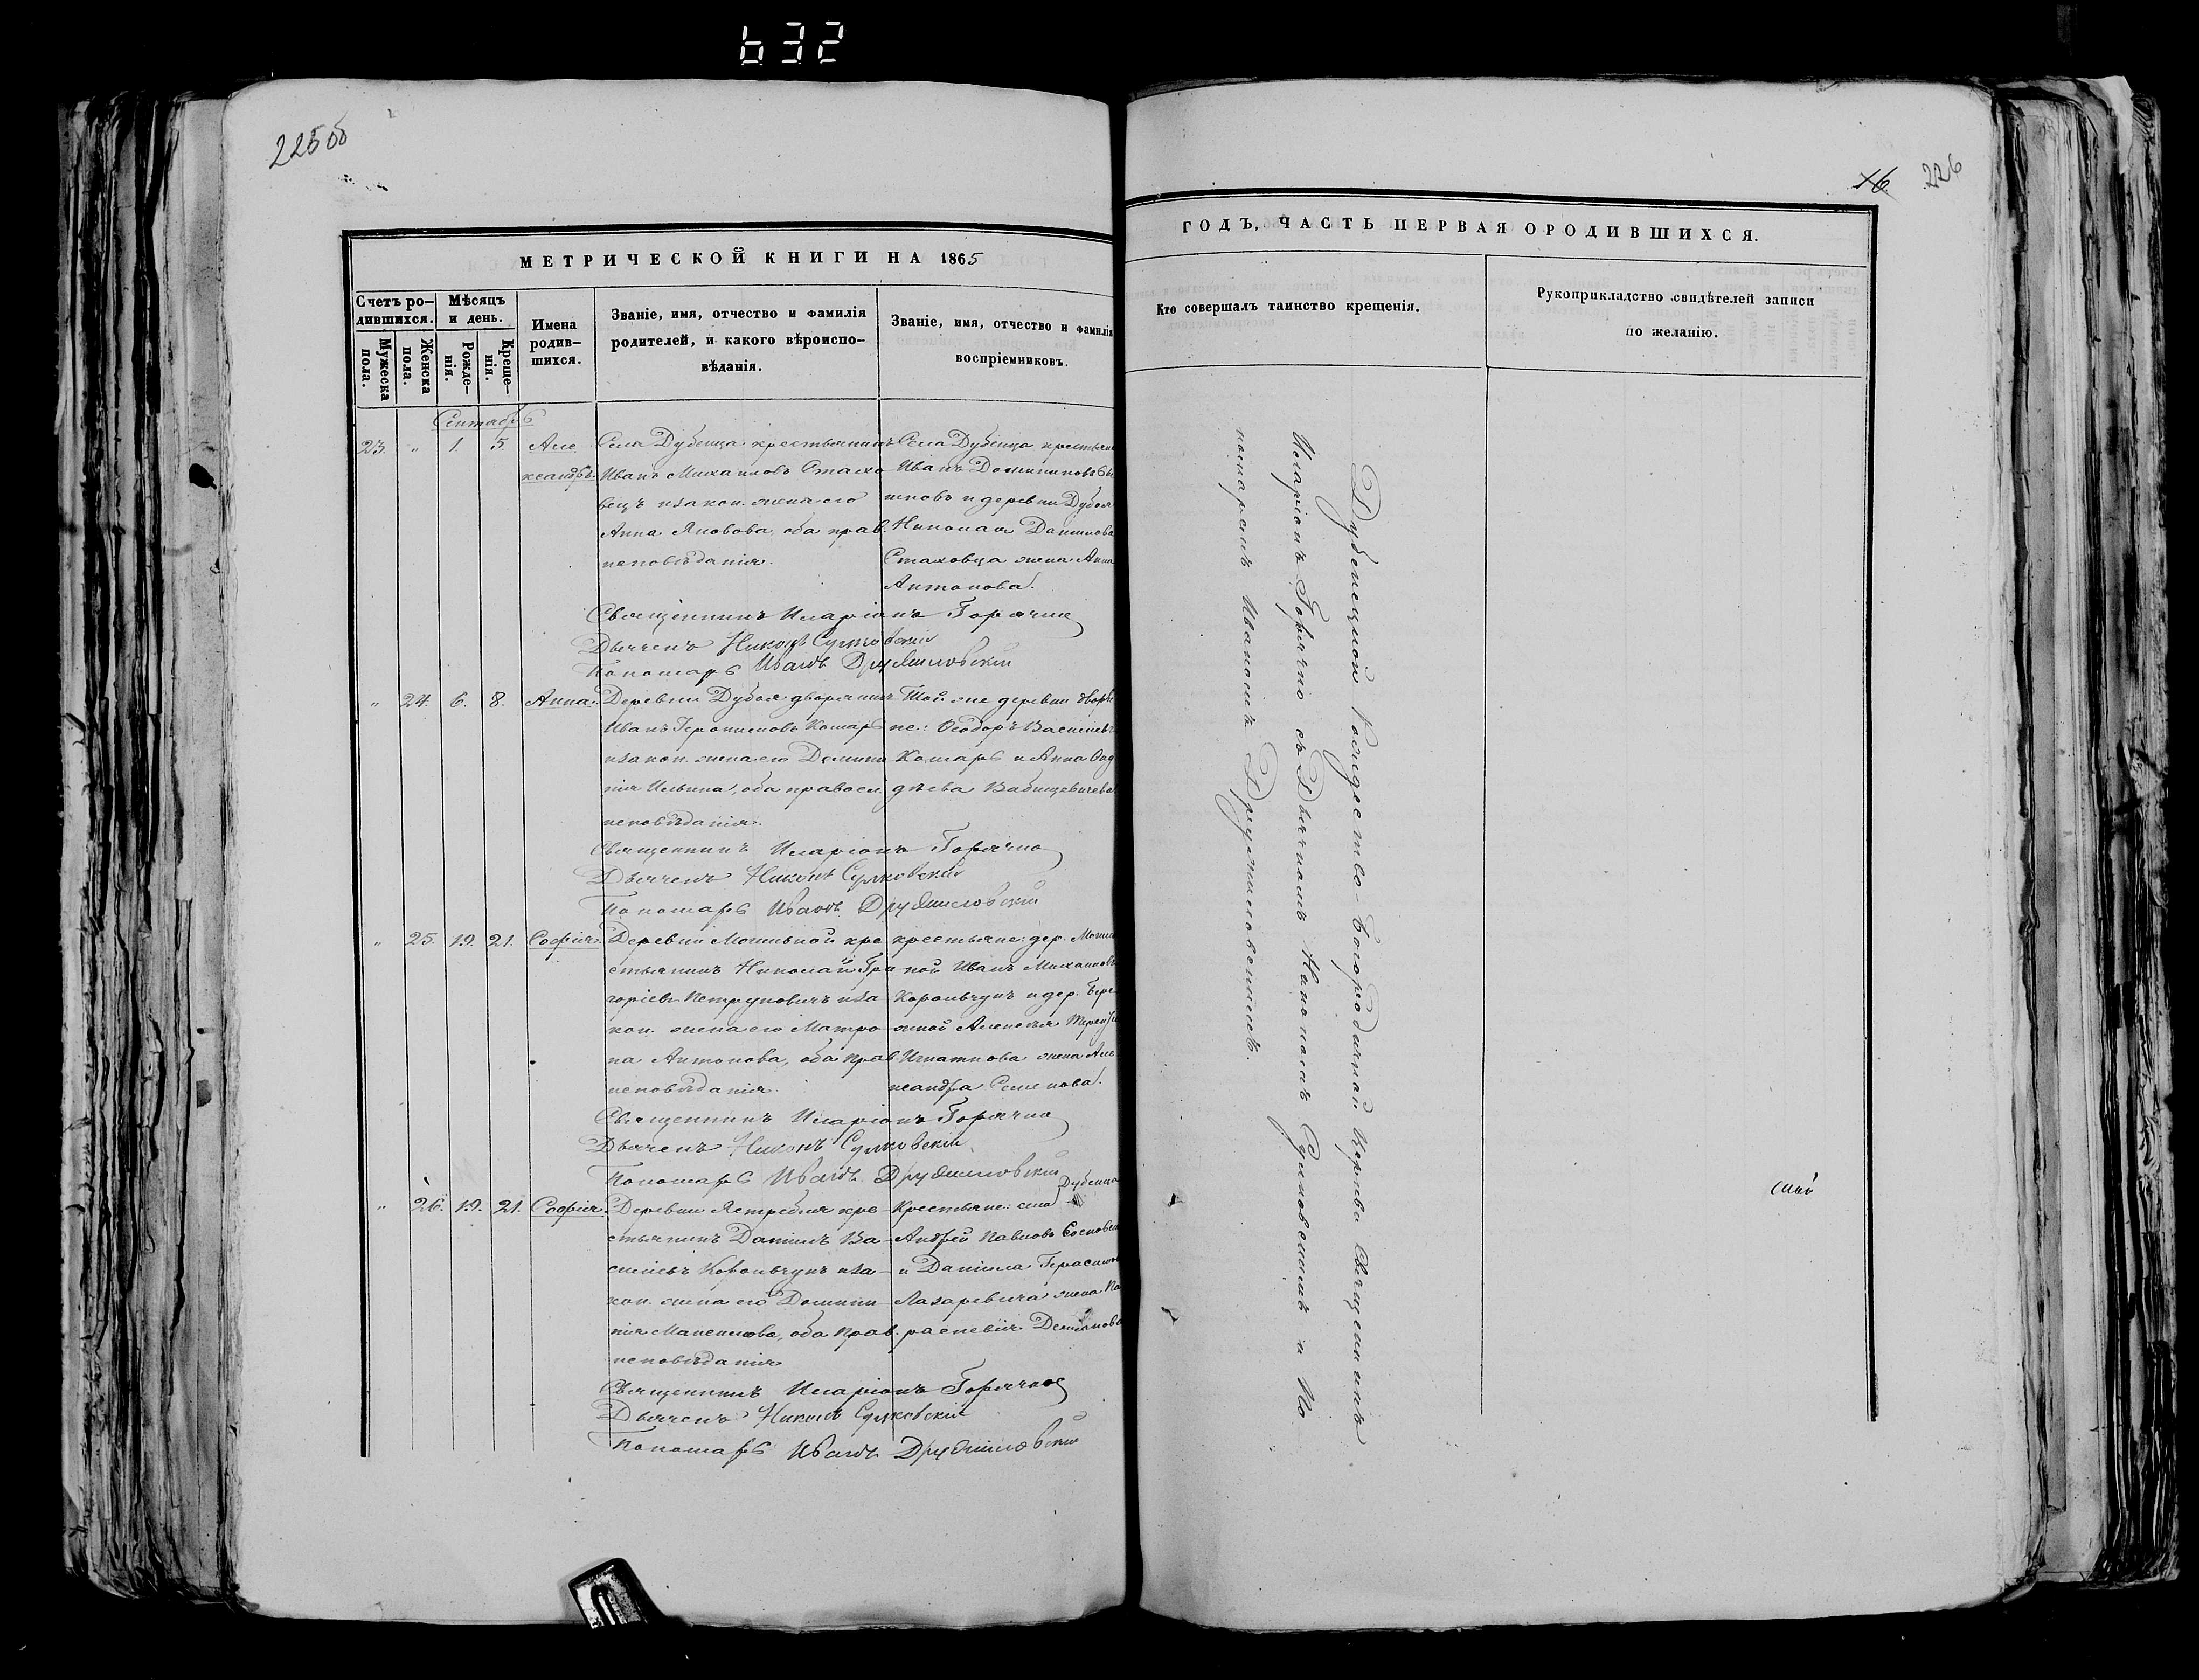 632
225 об
МЕТРИЧЕСКОЙ КНИГИ НА 1865
Счетъ ро-
дившихся.
Мужеска
пола.
Женска
пола.
Мѣсяцъ
и день.
Рожде-
нія.
Креще-
нія.
Имена
родив-
шихся.
Званіе, имя, отчество и фамилія
родителей, и какого вѣроиспо-
вѣданія.
Званіе, имя, отчество и фамилія
воспріемниковъ.
Сентябрь
23. " 1. 5. Але
ксандръ.
Села Дубенца крестьянинъ
Иванъ Михаиловъ Стахо
вецъ и закон. жена его
Анна Яковова, оба прав.
исповѣданія.
Села Дубенца крестьяни
Иванъ Доминиковъ
и деревни Дубоя
Николая Данилова
Стаховца жена Анна
Антонова.
Священникъ Иларіонъ Горячко
Дьячекъ Никонъ Сулковскій
Пономарь Иванъ Дружиловскій
" 24. 6. 8. Анна.
Деревни Дубоя дворянинъ
Иванъ Іеронимовъ Комаръ
и закон. жена его Домини
кія Ильина, оба правосл.
исповѣданія.
Той же деревни дворя
не: Ѳеодоръ Васильевъ
Комаръ и Анна Ѳад
дѣева Бабицевичева
Священникъ Иларіонъ Горячко
Дьячекъ Никонъ Сулковскій
Пономарь Иванъ Дружиловскій
" 25. 19. 21. Софія.
Деревни Могильной кре
стьянинъ Николай Гри
горіевъ Петруковичъ и за
кон. жена его Матро
на Антонова, оба прав.
исповѣданія.
крестьяне: дер. Могиль
ной Иванъ Михаиловъ
Корольчукъ и дер. Бере
жной Алексѣя
Игнатиова жена Але
ксандра Семенова.
Священникъ Иларіонъ Горячко
Дьячекъ Никонъ Сулковскій
Пономарь Иванъ Дружиловскій
" 26. 19. 21. Софія.
Деревни Ястребля кре
стьянинъ Даниилъ Ва-
силіевъ Корольчукъ и за-
кон. жена его Домини
кія Максимова, оба прав.
исповѣданія
Дубенца
Крестьяне: села
Андрей Павловъ Сосновск
и Даніила Герасимов
Лазаревича жена Па
раскевія Демянова
Священникъ Иларіонъ Горячко
Дьячекъ Никонъ Сулковскій
Пономарь Иванъ Дружиловскій
16 226
ГОДЪ, ЧАСТЬ ПЕРВАЯ О РОДИВШИХСЯ.
Кто совершалъ таинство крещенія.
Рукоприкладство свидѣтелей записи
по желанію.
Дубенецкой Рождество-Богородичной Церкви Священникъ
Иларіонъ Горячко съ Дьячкомъ Никономъ Сулковскимъ и По
номаремъ Иваномъ Дружиловскимъ.